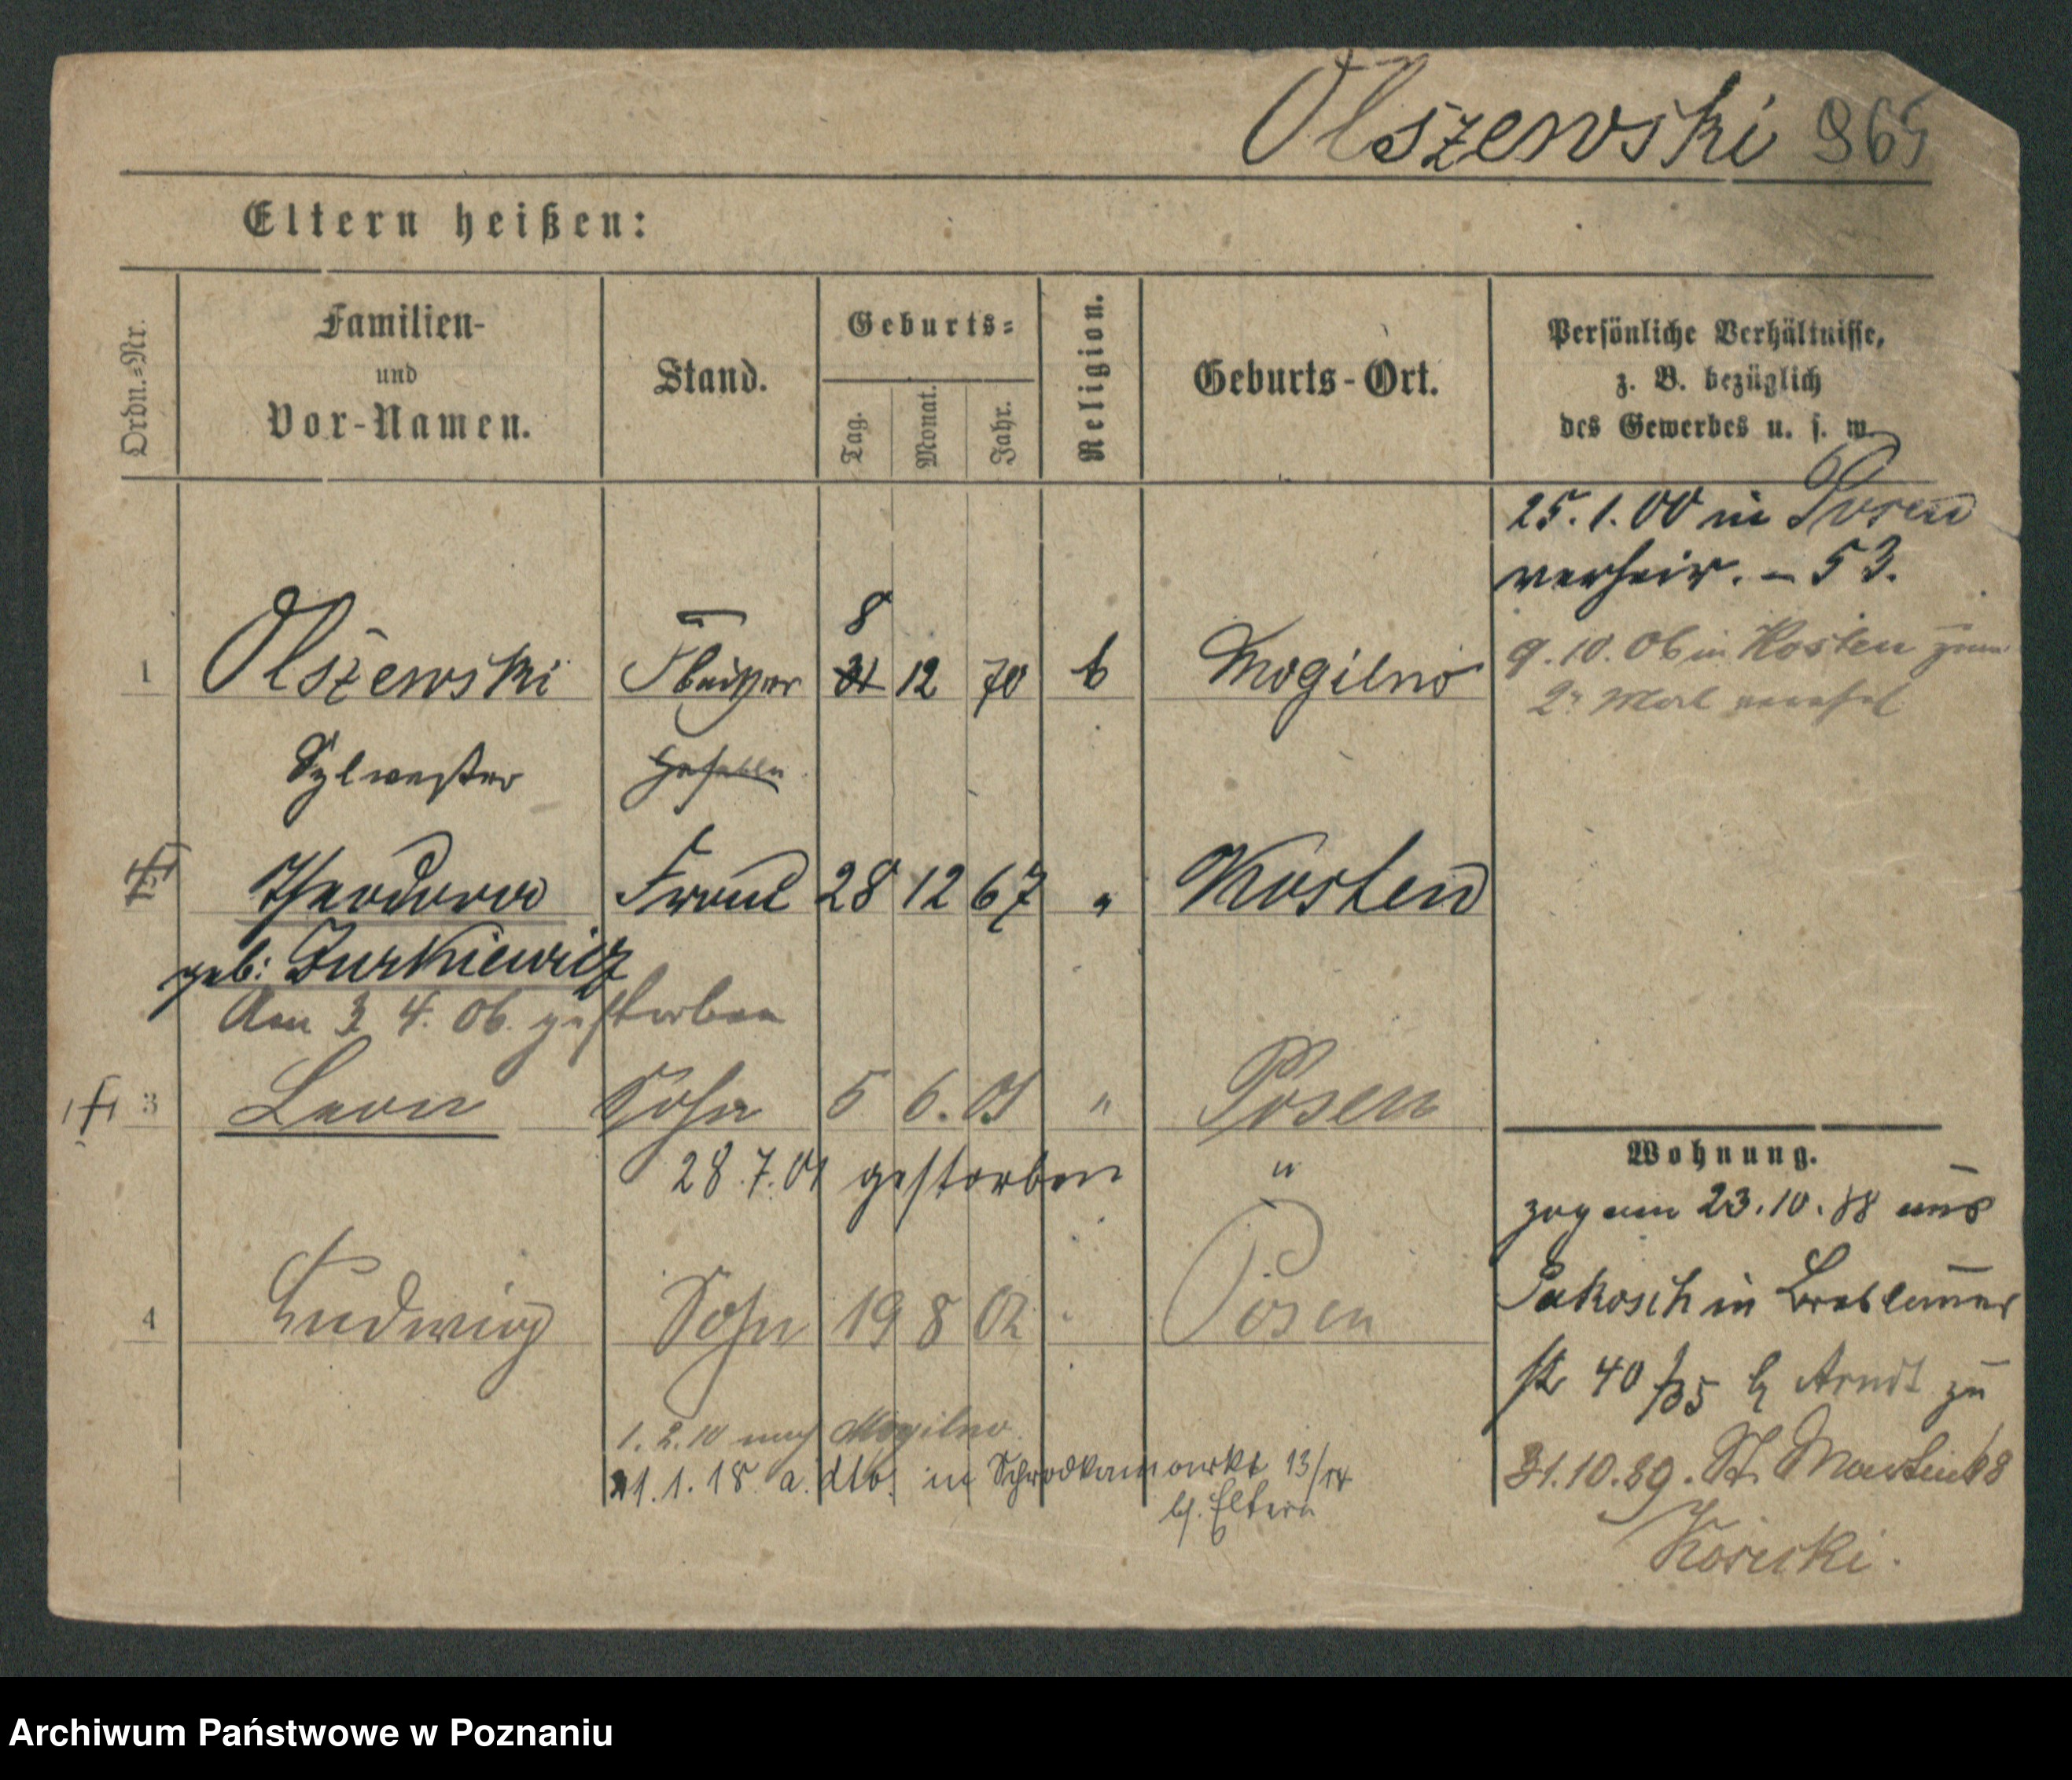 Olszewski 965
Eltern heißen:
Ordn.=Nr.
Familien-
und
Vor-Namen.
Stand.
Geburts=
Tag.
Monat.
Jahr.
Religion.
Geburts-Ort.
Persönliche Verhältnisse,
z. B. bezüglich
des Gewerbes u. s. w.
25.1.00 in Posen
verheir. – 53.
1 Olszewski 8 31 12 70 k Mogilno
9.10.06 in Kosten zum
2. Mal verehel
Sylwester Geselle
Theodora Frau 28 12 67 " Kosten
geb: Jurkiewicz
Am 3 4. 06. gestorben
3 Leon Sohn 5 6. 01 " Posen
28.7.01 gestorben "
4 Ludwig Sohn 19 8 02 Posen
1.2.10 nach Mogilno
1.1.18 a. dto. in Schrodkamarkt 13/14
b/. Eltern
Wohnung.
zog am 23.10.88 aus
Pakosch in Breslauer
str 40 b Arndt zu
31.10.89. St. Martin 68
Kosicki.
Archiwum Państwowe w Poznaniu